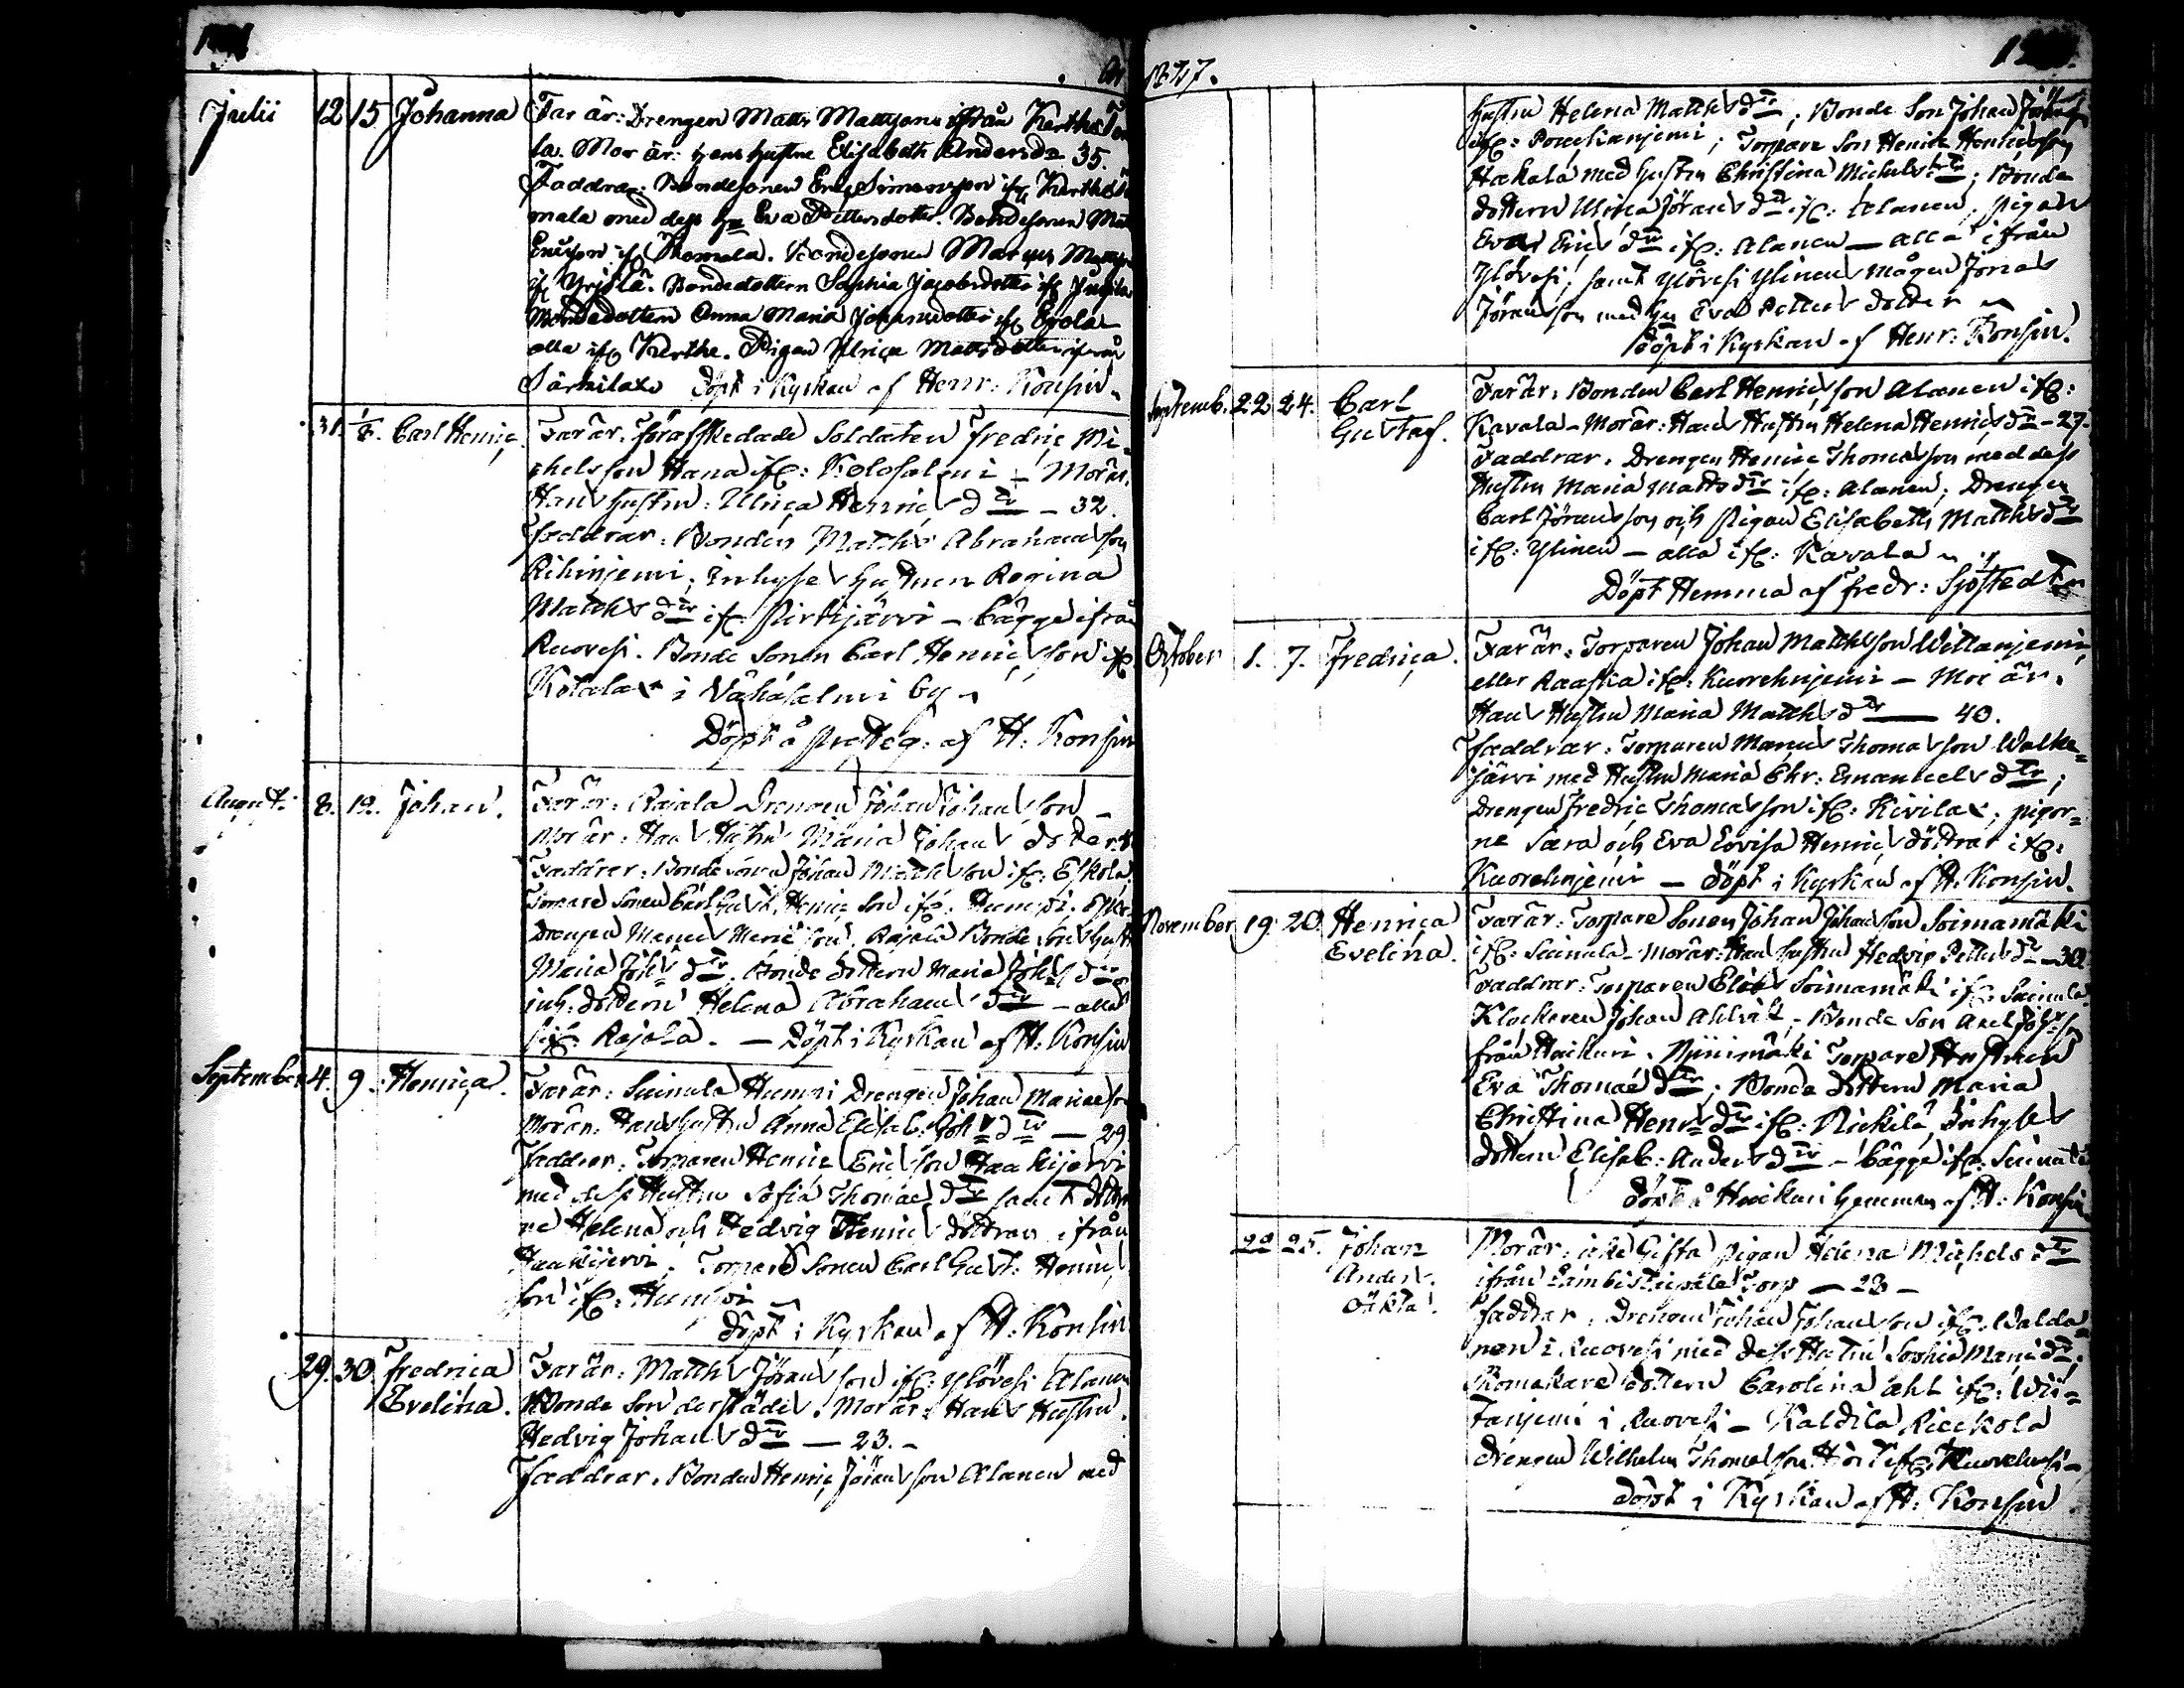 Julii 12 15 Johanna Far är: Drengen Matts Mattsons ifrån Kerthe
la. Mor är: hans hustru Elisabeth Andersdr 35.
Faddrar: Bondesonen Eric Simonsson ifr Kerthe
mala med dess hu Eva Pettersdotter. Bondesonen
Ericsson ifr Thomala. Bondesonen Marcus
ifr Yrjölä. Bondedottern Sophia Jacobsdotter ifr
Bondedottern Anna Maria Johansdotter ifr Erola
alla ifr Kerthe. Pigan Ulrica Mattsdotter ifrån
Särkilax döpt i Kyrkan af Henr: Konsin.
31. 1/8. Carl Henric. Far är. Förafskedade Soldaten Fredric Mi-
chelsson Hana ifr: Kolosalmi - Mor är.
Hans hustru: Ulrica Henrics dtr - 32.
Faddrar: Bonden Matths Abrahamsson
Rihinjemi; Inhyses hustrun Regina
Matths dtr ifr Pirttijärvi - bägge ifrån
Ruovesi. Bonde Sonen Carl Henricsson ifr
Kotala i Vähäsalmi by
Döpt å af H: Konsin
Augusti 8. 12. Johan. Far är: Rajala Drengen Johan Johansson -
Mor är: Hans Hustru Maria Johans dotter
Faddrar: Bonde sonen Johan Mathsson ifr: Eskola.
Torpare Sonen Carl Gust. Henricson ifr: Humpi.
Drengen Rajala Bonde Son
Maria Joh: dtr. Bonde dottern Maria Joh: dtr
inh. dottern Helena Abrahams dtr - alla
ifr: Rajala. - Döpt i Kyrkan af H: Konsin
September 4. 9. Henrica. Far är: Suinula Humpi Drengen Johan
Mor är. Hans hustru Anna Elisab: Joh: dtr - 29
Faddrar. Torparen Henric Ericsson Haukijärvi
med dess Hustru Sofia Thomae dtr samt
ne Helena och Hedvig Henrics döttrar ifrån
Haukijärvi. Torpare Sonen Carl Gust: Henric
son ifr: Humpi
döpt i Kyrkan af H: Konsin
29. 30 Fredrica Far är: Matths Jöransson ifr: Ylövesi Alanen
Evelina. Bonde Son derstädes. Mor är: Hans Hustru.
Hedvig Johans dtr - 23. -
Faddrar. Bonden Henric Jöransson Alanen med
1847.
hustru Helena Matths dtr; Bonde Son Johan
ifr: Poukanjemi; Torpare Son Henric Henricsson
Hakala med hustru Christina Michels dtr; Bonde
dottern Ulrica Jörans dtr ifr: Alanen, pigan
Eva Erics dtr ifr: Alanen - alla ifrån
Ylövesi; samt Ylövesi Ylinens mågen Jonas
Jöransson med hu Eva Petters dotter
döpt i Kyrkan af Henr: Konsin.
Septemb. 22 24. Carl Far är. Bonden Carl Henricsson Alanen ifr:
Gustaf. Kavala - Mor är: Hans Hustru Helena Henrics dtr - 27.
Faddrar. Drengen Henric Thomasson med dess
Hustru Maria Matts dtr ifr: Alanen; Drengen
Carl Jöransson och pigan Elisabeth Matths dtr
ifr: Ylinen - alla ifr: Kavala
Döpt Hemma af Fredr: Sjöstedt
October 1. 7. Fredrica. Far är: Torparen Johan Mathsson Willanjemi,
eller Raaska ifr: Kuorehnjemi - Mor är.
Hans Hustru Maria Matths dtr - 40.
Faddrar: Torparen Marcus Thomasson Walke-
järvi med Hustru Maria Chr: Emanuels dtr;
Drengen Fredric Thomasson ifr: Kivilax; pigor-
ne Sara och Eva Lovisa Henrics döttrar ifr:
Kuorehnjemi - döpt i Kyrkan af H. Konsin.
November 19. 20. Henrica Far är: Torpare Sonen Johan Johansson Soimamäki
Evelina. ifr: Suinula - Mor är: Hans hustru Hedvig Petters dtr - 30
Faddrar: Torparen Elias Soimamäki ifr Suinula,
Klockaren Johan Ahlqvist, Bonde Son Axel Joh:son
från Haikari. Torpare Hustrun
Eva Thomae dtr; Bonde dottern Maria
Christina Henrs dtr ifr: Rickilä, Inhyses
dottern Elisab: Anders dtr - bägge ifr: Suinula
döpt å Haikari hemman af H: Konsin
22 25. Johan Mor är. icke Gifta pigan Helena Michels dtr
Anders. ifrån Torp - 23 -
Oäkta. Faddrar. Drengen Johan Johansson ifr: Walda
nen i Ruovesi med dess Hustru Sophia dtr.
Skomakare dottern Carolina Ahl ifr: Wii-
tanjemi i Ruovesi - Kaldila Rieckola
Drengen Wilhelm Thomasson ifr: Kuorehvesi -
döpt i Kyrkan af H: Konsin.